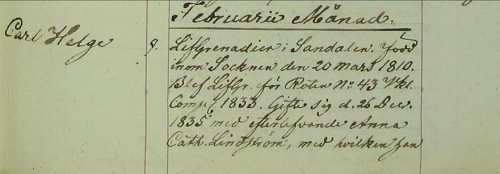 Februarii Månad.
Carl Helge
9. Lifgrenadier i Sandalen. Född
inom Socknen den 20 Mars 1810.
Blef Lifgr. för Roten No 43
Comp. 1833. Gifte sig d. 26 Dec.
1835 med efterlefvande Anna
Cath. Lindström, med wilken han